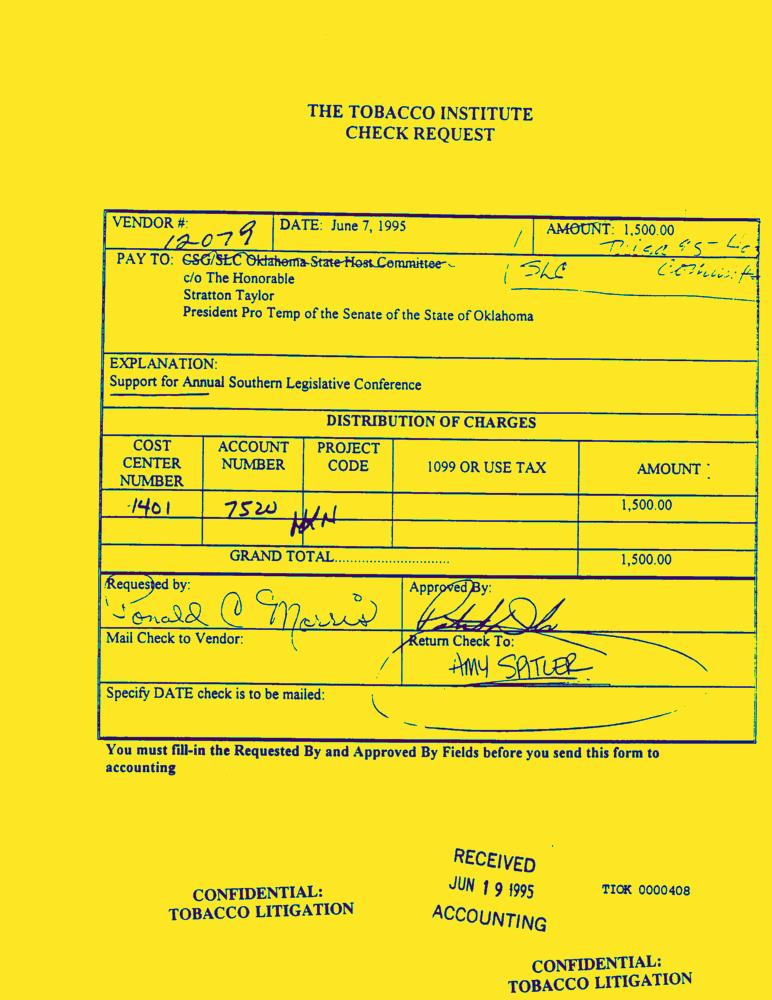 THE TOBACCO INSTITUTE
CHECK REQUEST
VENDOR #: 12079
DATE: June 7, 1995
AMOUNT: 1,500.00
PAY TO: CSG/SLC Oklahoma State Host Committee
SLC
c/o The Honorable
Stratton Taylor
President Pro Temp of the Senate of the State of Oklahoma
EXPLANATION:
Support for Annual Southern Legislative Conference
DISTRIBUTION OF CHARGES
COST CENTER NUMBER
ACCOUNT NUMBER
PROJECT CODE
1099 OR USE TAX
AMOUNT
1401 7520 1,500.00
GRAND TOTAL.............................. 1,500.00
Requested by:
Approved By:
Donald C Morris
Mail Check to Vendor:
Return Check To:
AMY SPITLER
Specify DATE check is to be mailed:
You must fill-in the Requested By and Approved By Fields before you send this form to
accounting
RECEIVED
JUN 19 1995
ACCOUNTING
CONFIDENTIAL:
TOBACCO LITIGATION
TIOK 0000408
CONFIDENTIAL:
TOBACCO LITIGATION